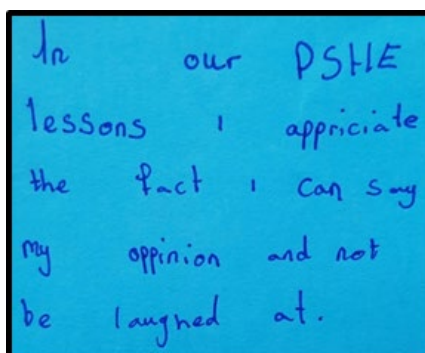 In our PSHE
lessons i appriciate
the fact i can say
my oppinion and not
be laughed at.